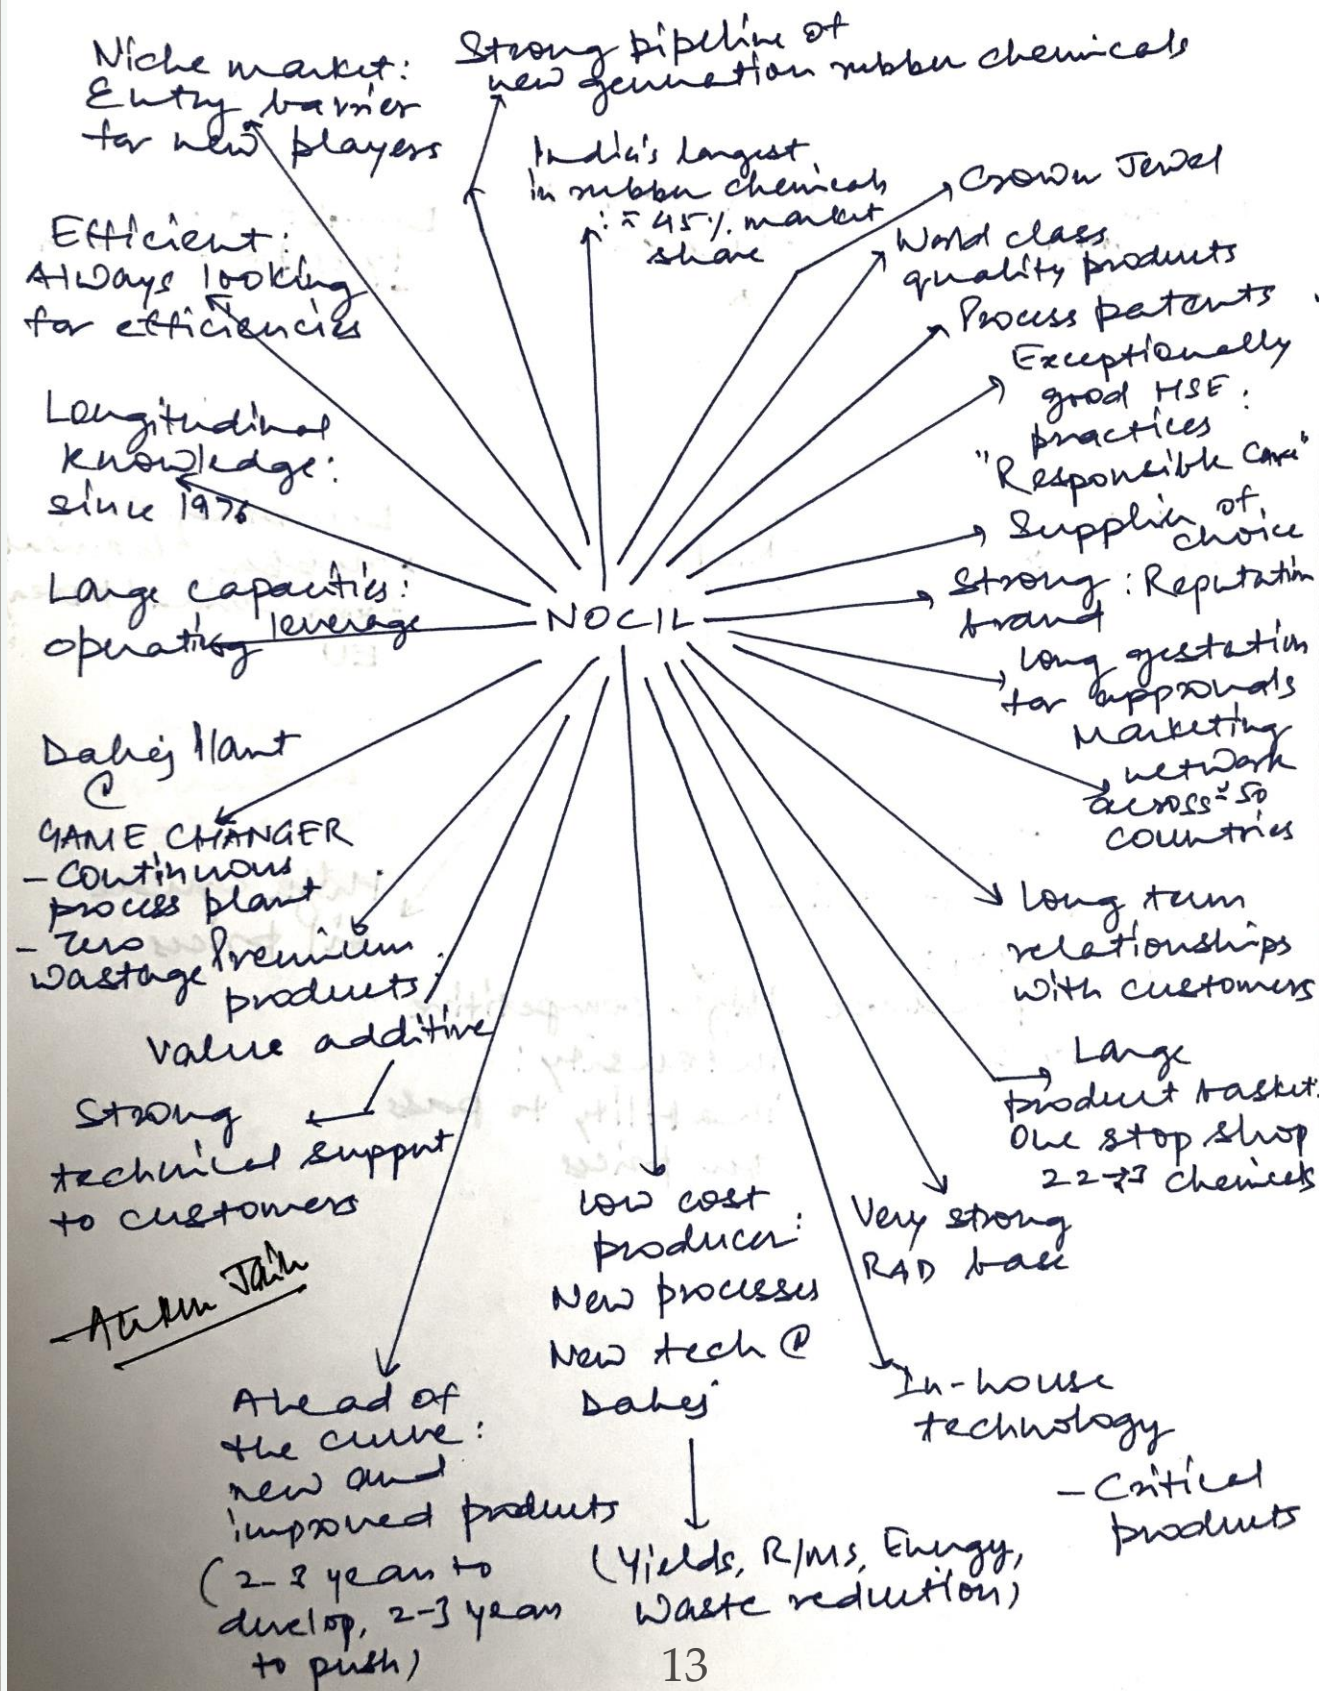 Niche market:
Entry barrier
for new players
Strong pipeline of
new generation rubber chemicals
India's largest
in rubber chemicals
: ≈ 45% market
share
Crown Jewel
World class
quality products
Process patents
Exceptionally
good HSE :
practices
"Responsible Care"
Supplier of
choice
Strong : Reputation
brand
Long gestation
for approvals
Marketing
network
across ≈ 50
countries
Long term
relationships
with customers
Large
product basket:
One stop shop
22-23 chemicals
Very strong
R&D base
In-house
technology
- Critical
products
Low cost
producer:
New processes
New tech @
Dahej
(Yields, R/Ms, Energy,
Waste reduction)
Ahead of
the curve:
new and
improved products
(2-3 years to
develop, 2-3 years
to push)
Strong
technical support
to customers
Premium
products:
Value additive
Dahej Plant
@
GAME CHANGER
- Continuous
process plant
- Zero
wastage
Large capacities:
operating leverage
Longitudinal
knowledge:
since 1976
Efficient:
Always looking
for efficiencies
NOCIL
Jain
13